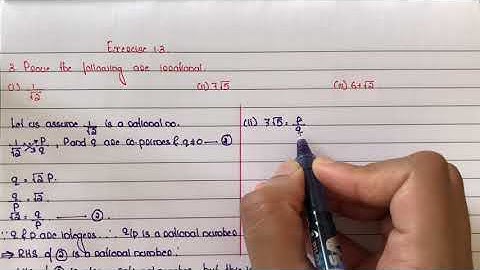 Exercise 1.3.
3. Prove the following are irrational.
(i) 1/√2 (ii) 7√5 (iii) 6+√2
Let us assume 1/√2 is a rational no.
1/√2 = P/q , P and q are co-primes & q≠0 — ①
q = √2 P.
q/P = √2.
√2 = q/P — ②.
∵ q & p are integers ∴ q/p is a rational number
⇒ RHS of ② is a rational number
(ii) 7√5 = P/q